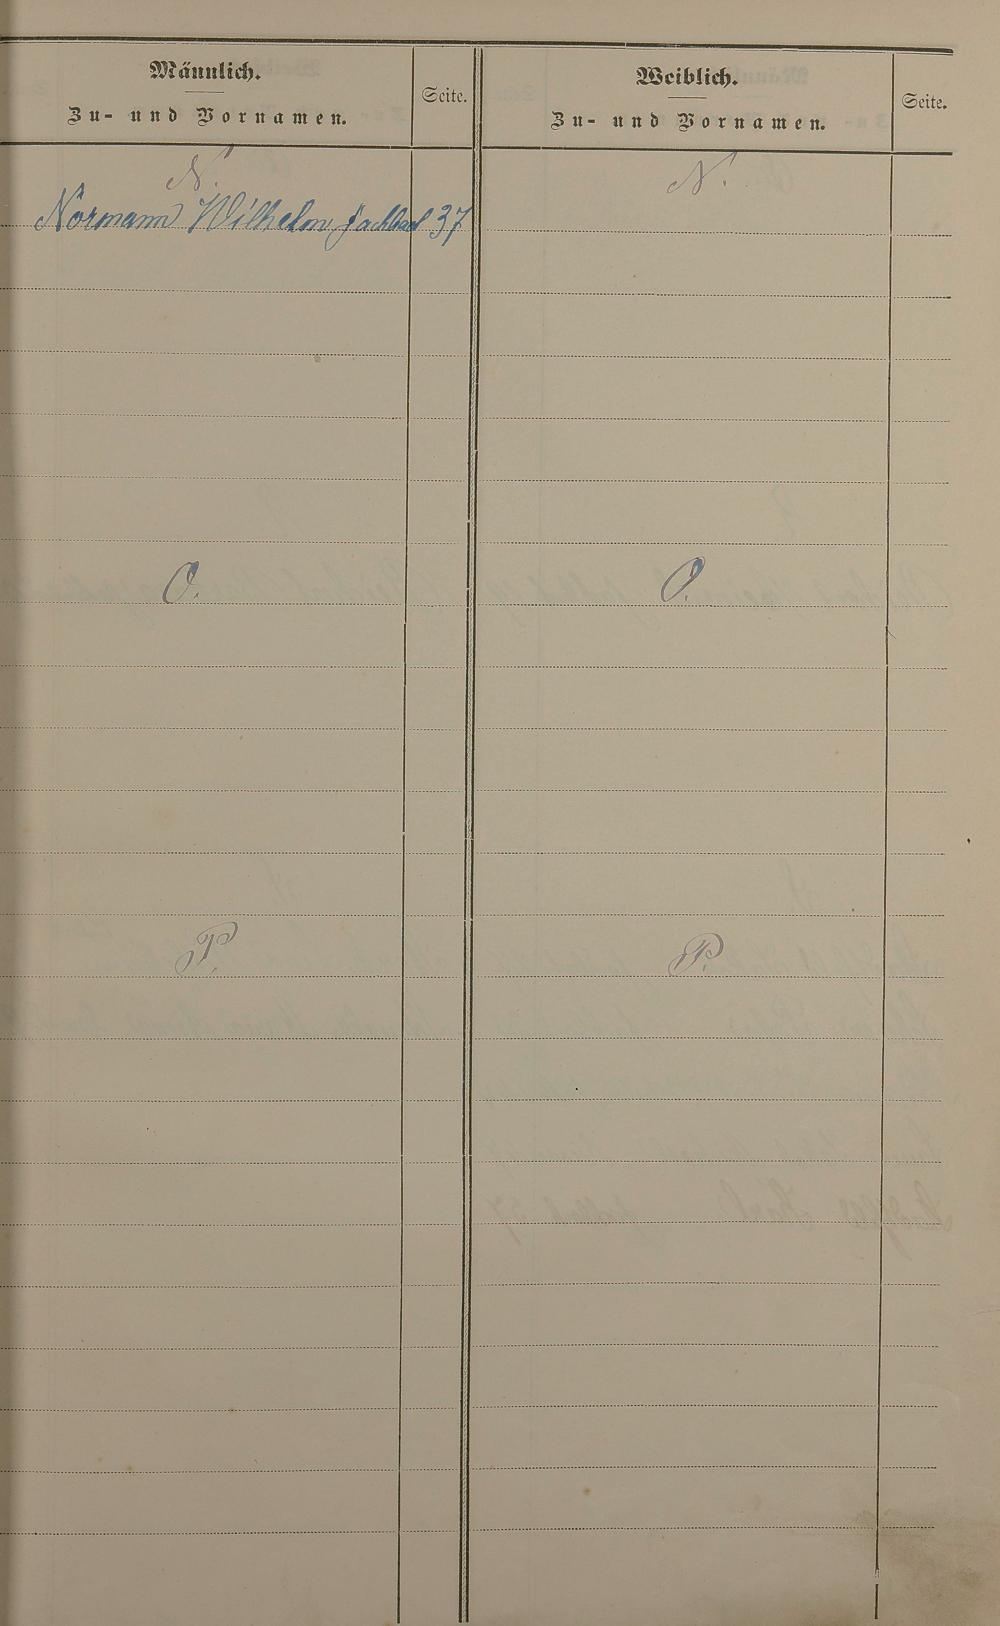 Männlich.
Zu- und Vornamen.
Seite.
Weiblich.
Zu- und Vornamen.
Seite.
N.
N.
Normann Wilhelm 37
O.
O.
P.
P.